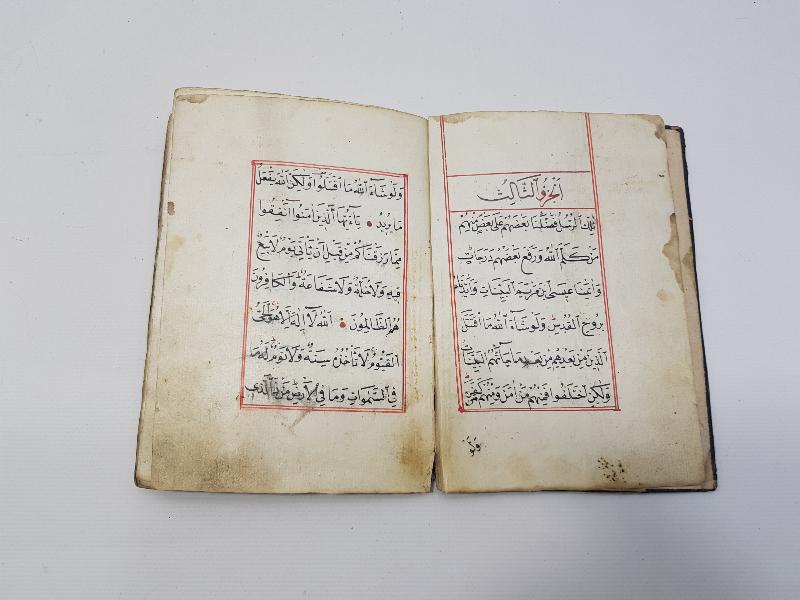 الجزو الثالث
تلك الرسل فضلنا بعضهم على بعض منهم
من كلم الله ورفع بعضهم درجات
واتينا عيسى ابن مريم البينات وايدناه
بروح القدس ولو شاء الله ما اقتتل
الذين من بعدهم من بعد ما جائتهم البينات
ولكن اختلفوا فمنهم من امن ومنهم من كفر
ولو
ولو شاء الله ما اقتتلوا ولكن الله يفعل
ما يريد • ياءيها الذين امنوا انفقوا
مما رزقناكم من قبل ان ياتي يوم لا بيع
فيه ولا خلة ولا شفاعة والكافرون
هم الظالمون • الله لا اله الا هو الحي
القيوم لا تاخذه سنة ولا نوم له ما
في السموات وما في الارض من ذا الذي